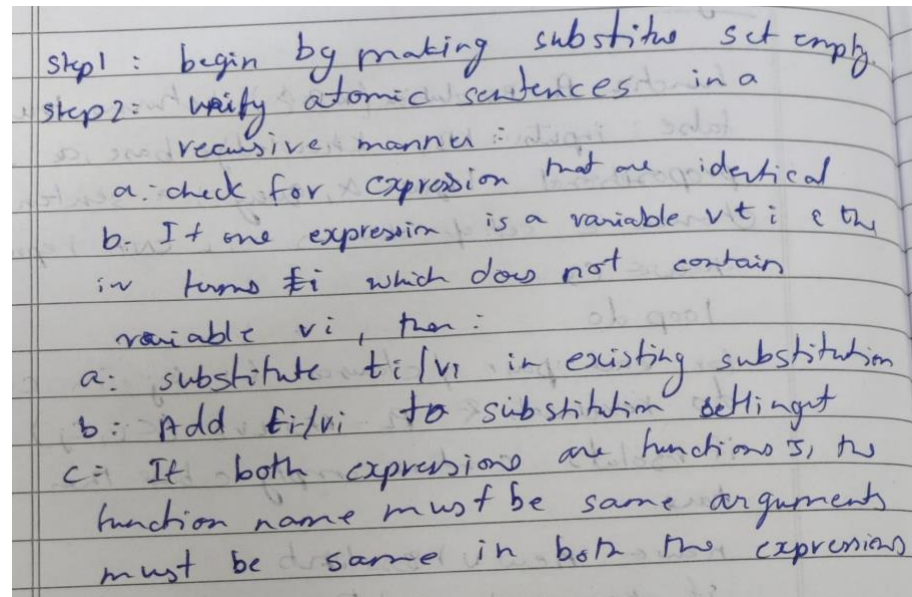 Step1 : begin by making substitue set empty
Step2: unify atomic sentences in a
recursive manner :
a: check for expression that are identical
b: If one expression is a variable vt i & the
in terms ti which does not contain
variable vi, then :
a: substitute ti/vi in existing substitution
b: Add ti/vi to substitution settinget
c: If both expressions are functions, the
function name must be same arguments
must be same in both the expressions